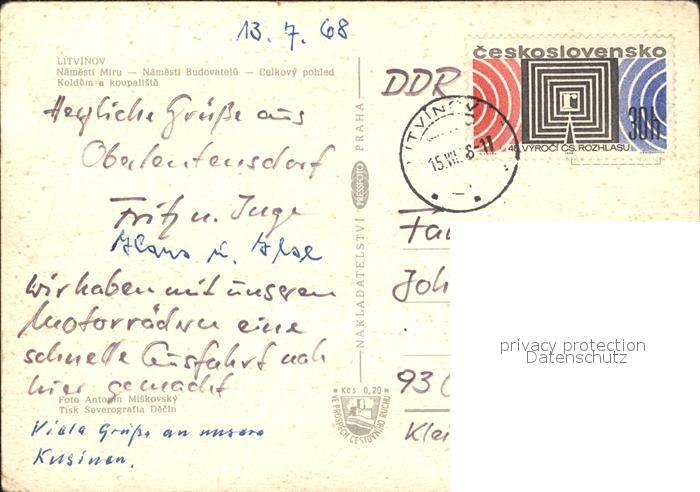 13. 7. 68
LITVÍNOV
Náměstí Míru — Náměstí Budovatelů — Celkový pohled
Koldům a koupaliště
Herzliche Grüße aus
Oberleutensdorf
Fritz u. Inge
Klaus u. Ilse
Wir haben mit unseren
Motorrädern eine
schnelle Ausfahrt nach
hier gemacht
Foto Antonín Miškovský
Tisk Severografia Děčín
Viele Grüße an unsere
Kusinen.
NAKLADATELSTVÍ PRESSFOTO PRAHA
Kčs 0,20
VE PROSPĚCH CESTOVNÍHO RUCHU
československo
30h
45. VÝROČÍ ČS. ROZHLASU
LITVÍNOV
15.VII. 68-11
DDR
Fam
Joh
93
Klei
privacy protection
Datenschutz